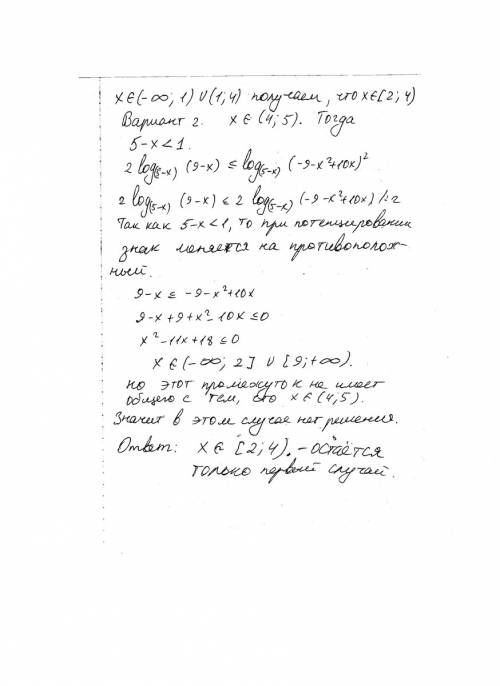 x∈(-∞; 1) ∪ (1; 4) получаем, что x∈[2; 4)
Вариант 2. x ∈ (4; 5). Тогда
5-x<1.
2 log(5-x) (9-x) ≤ log(5-x) (-9-x²+10x)²
2 log(5-x) (9-x) ≤ 2 log(5-x) (-9-x²+10x) /:2
Так как 5-x<1, то при потенцировании
знак меняется на противополож-
ный.
9-x ≤ -9-x²+10x
9-x+9+x²-10x≤0
x²-11x+18≤0
x ∈(-∞; 2] ∪ [9;+∞).
но этот промежуток не имеет
общего с тем, что x∈(4;5).
Значит в этом случае нет решения.
Ответ: x ∈ [2; 4). - остаётся
только первый случай.